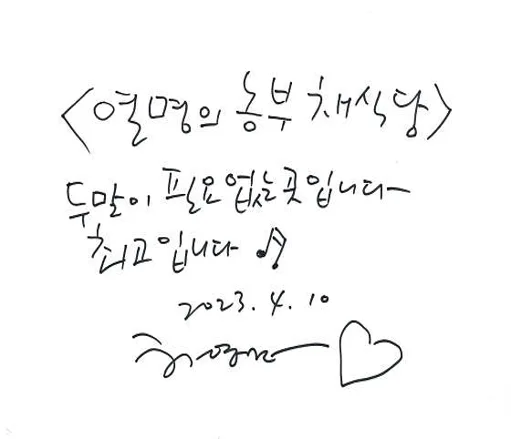 <열명의 농부 채식당>
두말이 필요없는 곳입니다~
최고입니다 ♫
2023. 4. 10